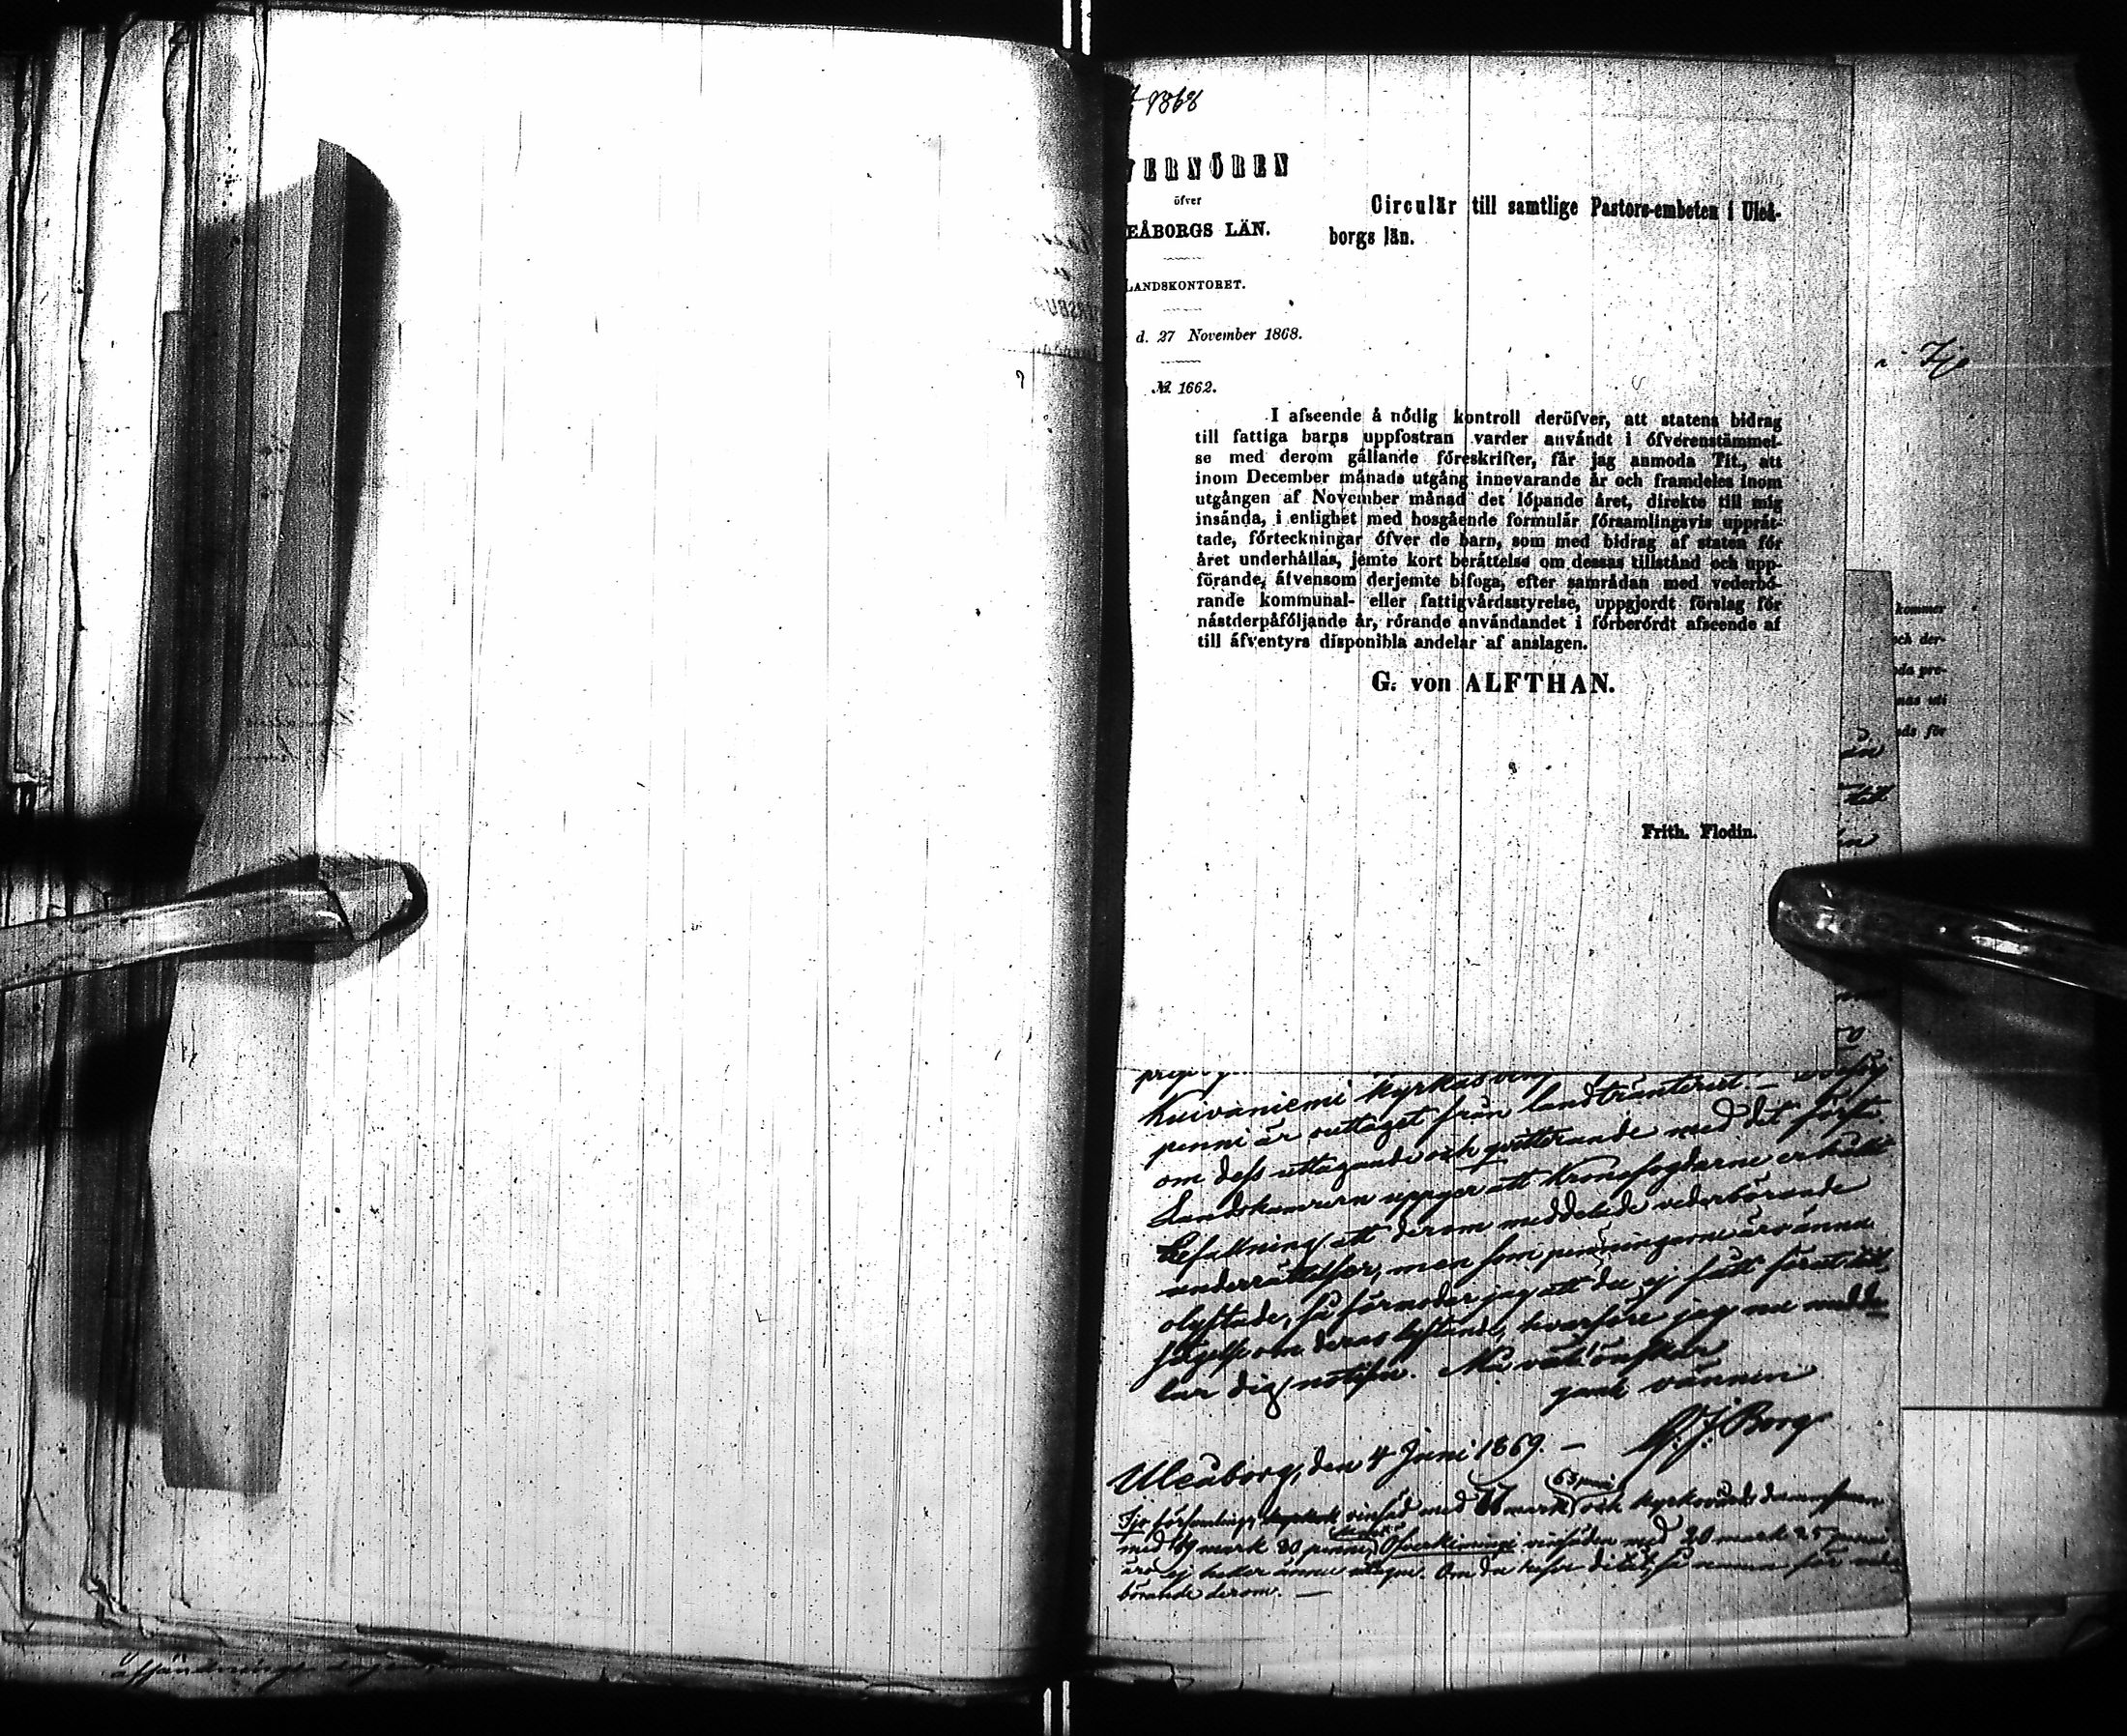 1868
VERNÖREN
öfver
EÅBORGS LÄN.
LANDSKONTORET.
d. 27 November 1868.
№ 1662.
Circulär till samtlige Pastors-embeten i Uleå-
borgs län.
I afseende å nödig kontroll deröfver, att statens bidrag
till fattiga barns uppfostran varder användt i öfverenstämmel-
se med derom gällande föreskrifter, får jag anmoda Tit., att
inom December månads utgång innevarande år och framdeles inom
utgången af November månad det löpande året, direkte till mig
insända, i enlighet med hosgående formulär församlingsvis upprät-
tade, förteckningar öfver de barn, som med bidrag af staten för
året underhållas, jemte kort berättelse om dessas tillstånd och upp-
förande, äfvensom derjemte bifoga, efter samrådan med vederbö-
rande kommunal- eller fattigvårdsstyrelse, uppgjordt förslag för
nästderpåföljande år, rörande användandet i förberördt afseende af
till äfventyrs disponibla andelar af anslagen.
G. von ALFTHAN.
Frith. Flodin.
Ijo
kommer
och der-
da pre-
nas uti
ds för
Kuivaniemi
penni är uttaget från landtränteriet
om dess uttagande och qvitterande med det första.
Landskamrern uppger att Kronofogdarne erhållit
Befallning att derom meddela de vederbörande
underrättelser, men som penningarne äro ännu
olyftade, så förmodar jag att du ej fått
om deras lyftande, hvarföre jag nu medde-
lar dig notisen. Må väl önskar
gamle vännen
Borg
Uleåborg, den 4 Juni 1869. —
Ijo församlings vinsäd med mark 63 penni och kyrkovärds
med 49 mark 30 penni, Öfverkiminge vinsäden med 20 mark 25 penni
äro ej heller ännu Om du
börande derom. —